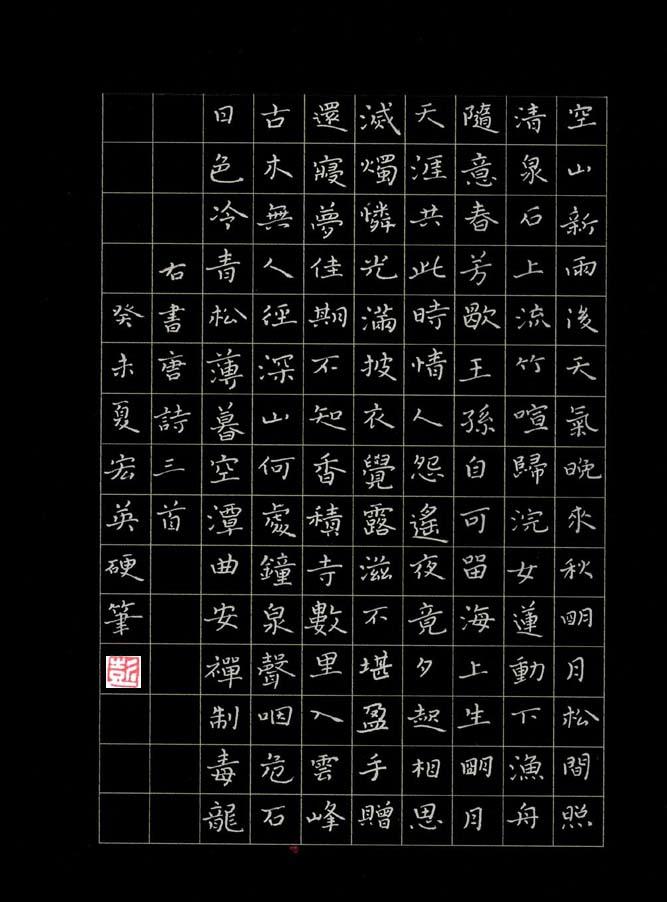 空山新雨後天氣晚來秋明月松間照
清泉石上流竹喧歸浣女蓮動下漁舟
隨意春芳歇王孫自可留海上生明月
天涯共此時情人怨遙夜竟夕起相思
滅燭憐光滿披衣覺露滋不堪盈手贈
還寢夢佳期不知香積寺數里入雲峰
古木無人徑深山何處鐘泉聲咽危石
日色冷青松薄暮空潭曲安禪制毒龍
右書唐詩三首
癸未夏宏英硬筆